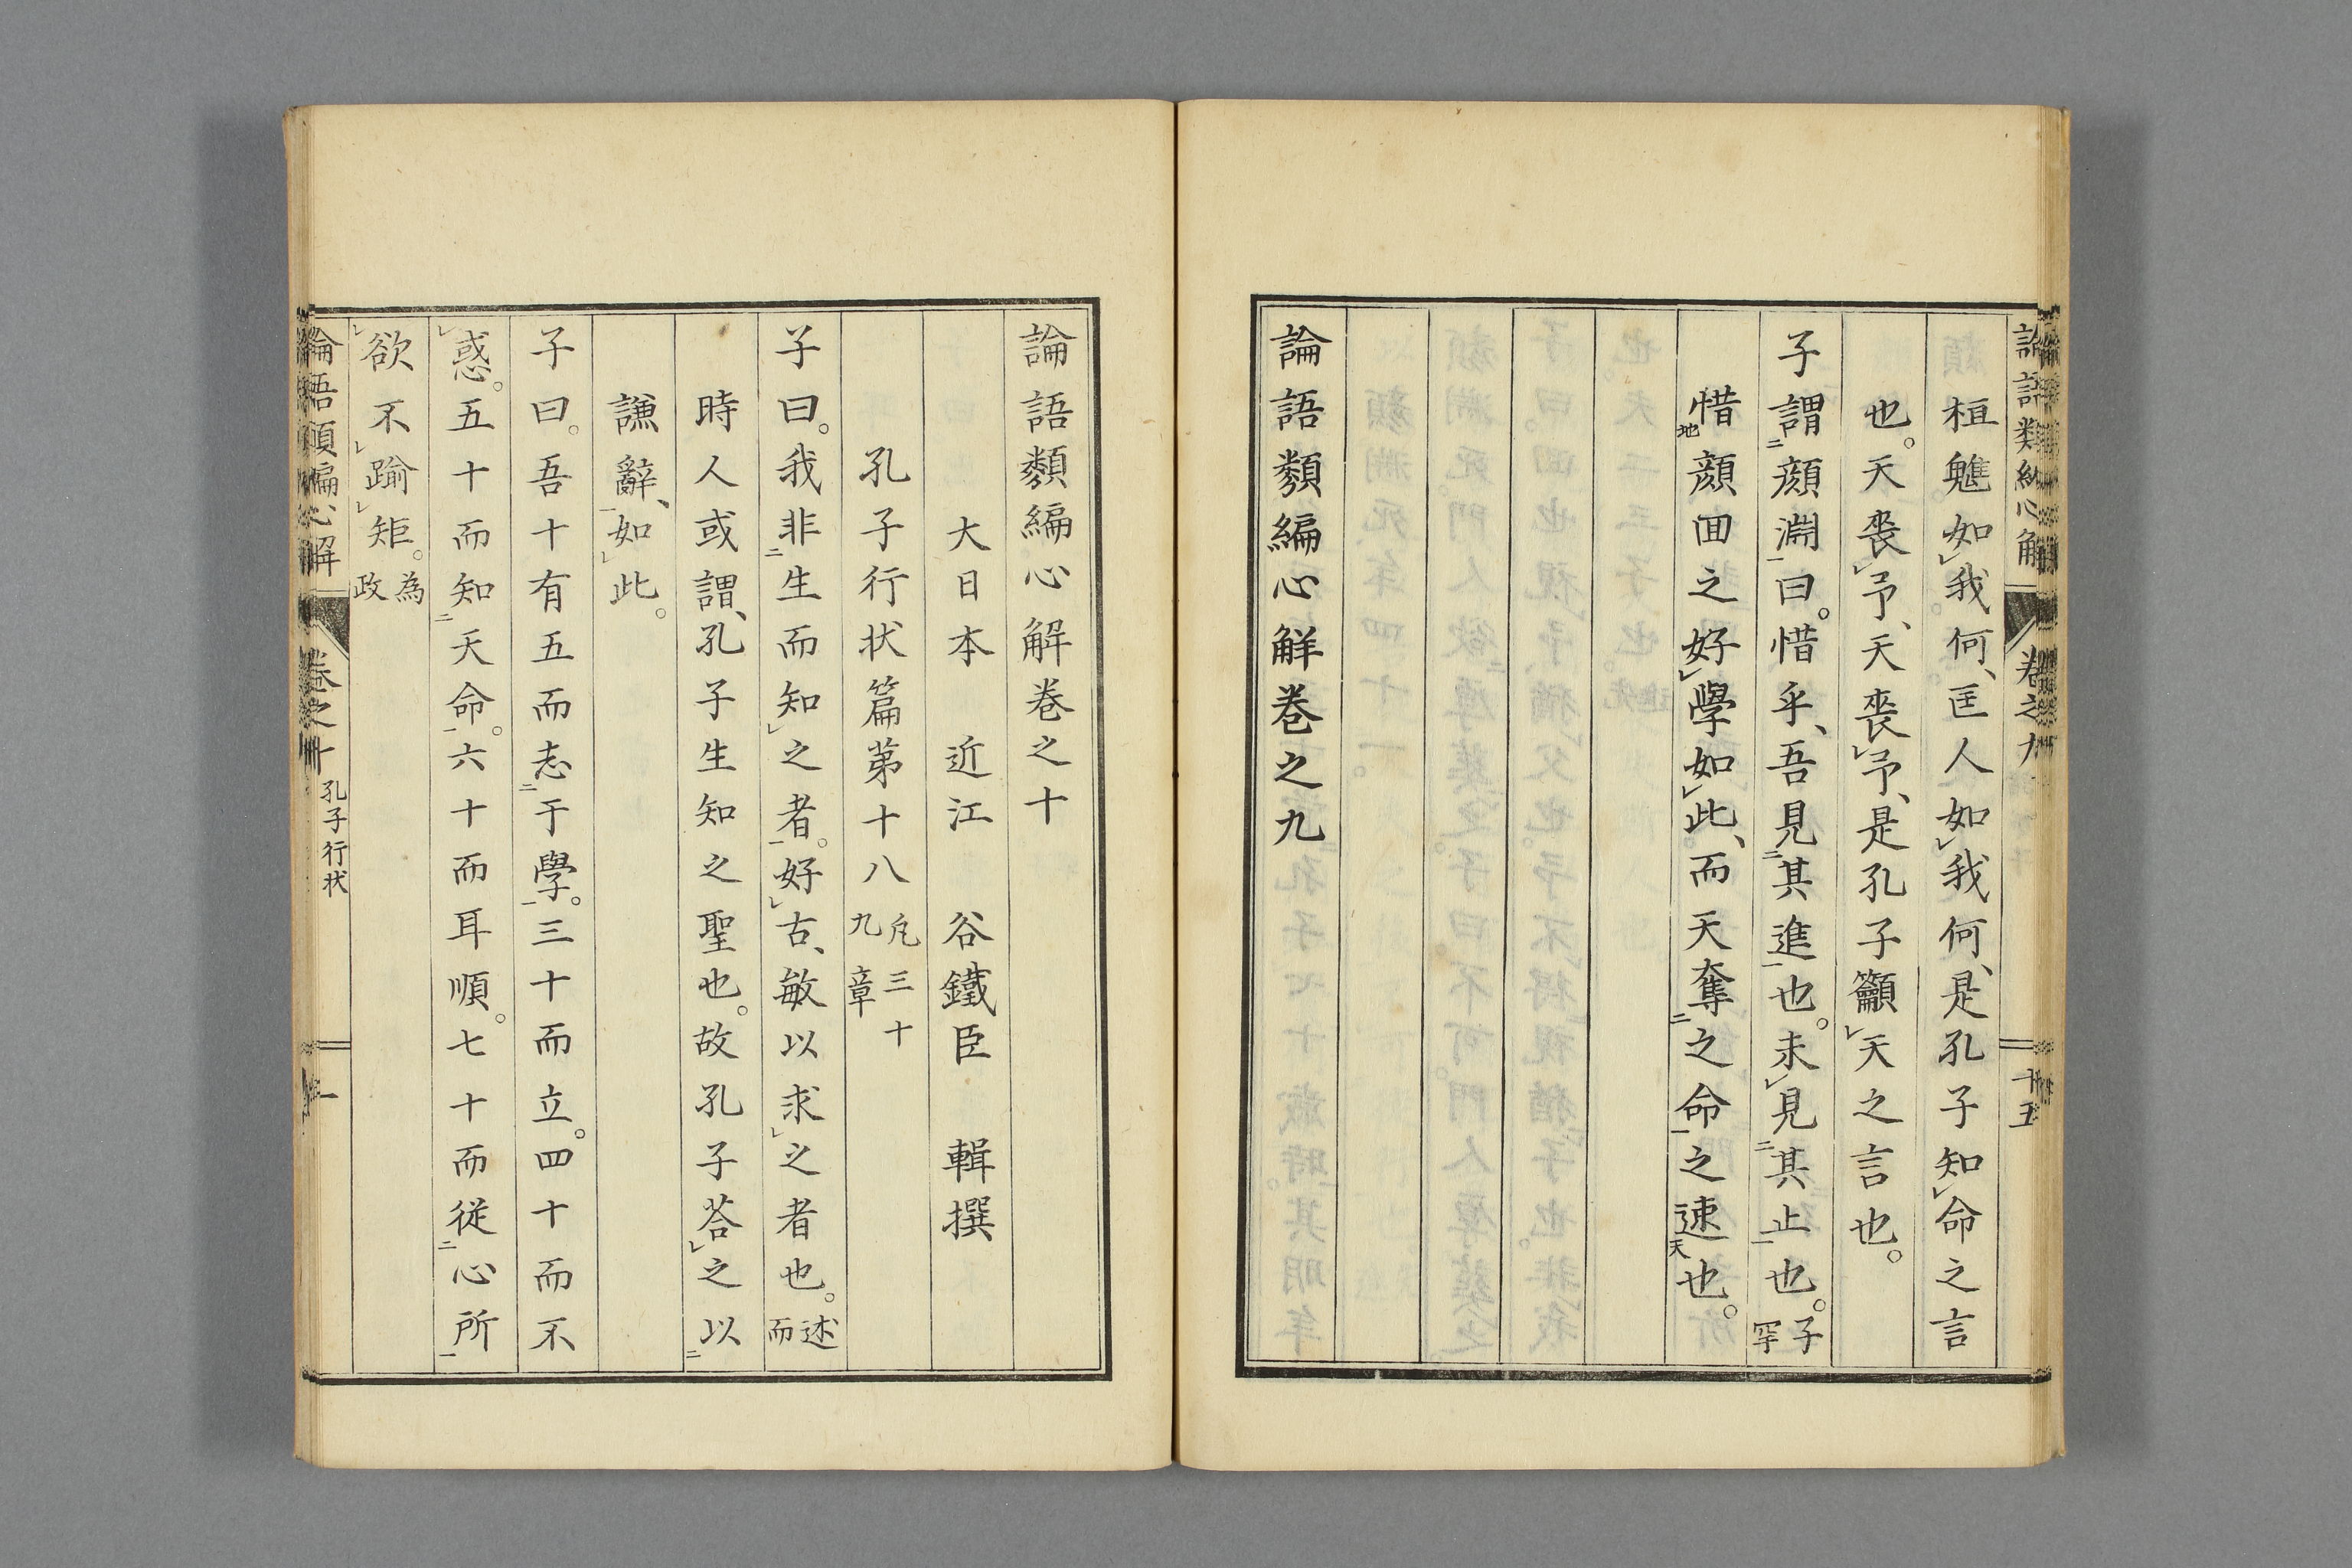 桓魋如我何、匡人如我何、是孔子知命之言
也。天喪予、天喪予、是孔子籲天之言也。
子謂顔淵曰。惜乎、吾見其進也。未見其止也。子罕
惜顔回之好學如此、而天奪之命之速也。
論語類編心觧巻之九
論語類編心解巻之十
大日本 近江 谷鐵臣 輯撰
孔子行状篇第十八 凡三十九章
子曰。我非生而知之者。好古、敏以求之者也。述而
時人或謂、孔子生知之聖也。故孔子荅之以
謙辭、如此。
子曰。吾十有五而志于學。三十而立。四十而不
惑。五十而知天命。六十而耳順。七十而従心所
欲不踰矩。為政
論語類編心解 巻之十 孔子行状 一